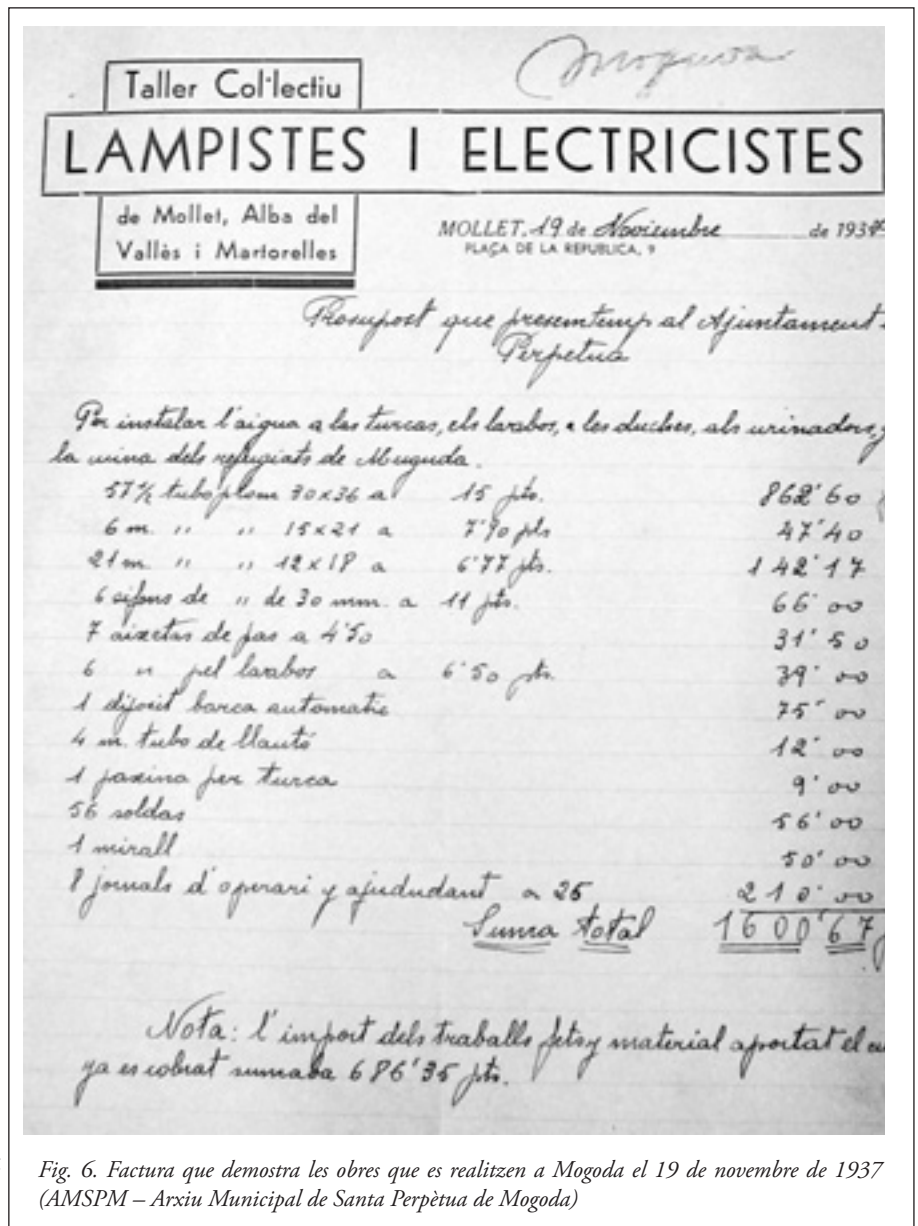 Moguda
Taller Col·lectiu
LAMPISTES I ELECTRICISTES
de Mollet, Alba del
Vallès i Martorelles
MOLLET, 19 de Noviembre de 1937
PLAÇA DE LA REPUBLICA, 9
Presupost que presentemp al Ajuntament
Perpetua
Per instalar l'aigua a las turcas, els larabos, a les duches, als urinadors, y
la mina dels refugiats de Muguda.
57½ tubo plom 30x36 a 15 pts. 862'60
6 m. " " 15x21 a 7'90 pts 47'40
21 m " " 12x18 a 6'77 pts. 142'17
6 sifons de " de 30 mm. a 11 pts. 66'00
7 aixetas de pas a 4'50 31'50
6 " pel larabos a 6'50 pts. 39'00
1 diposit barca automatic 75'00
4 m. tubo de llautó 12'00
1 paxina per turca 9'00
56 soldas 56'00
1 mirall 50'00
8 jornals d'operari y ajududant a 26 210'00
Suma total 1600'67
Nota: l'import dels traballs fets y material aportat el
ya es cobrat sumaba 686'35 pts.
Fig. 6. Factura que demostra les obres que es realitzen a Mogoda el 19 de novembre de 1937
(AMSPM – Arxiu Municipal de Santa Perpètua de Mogoda)